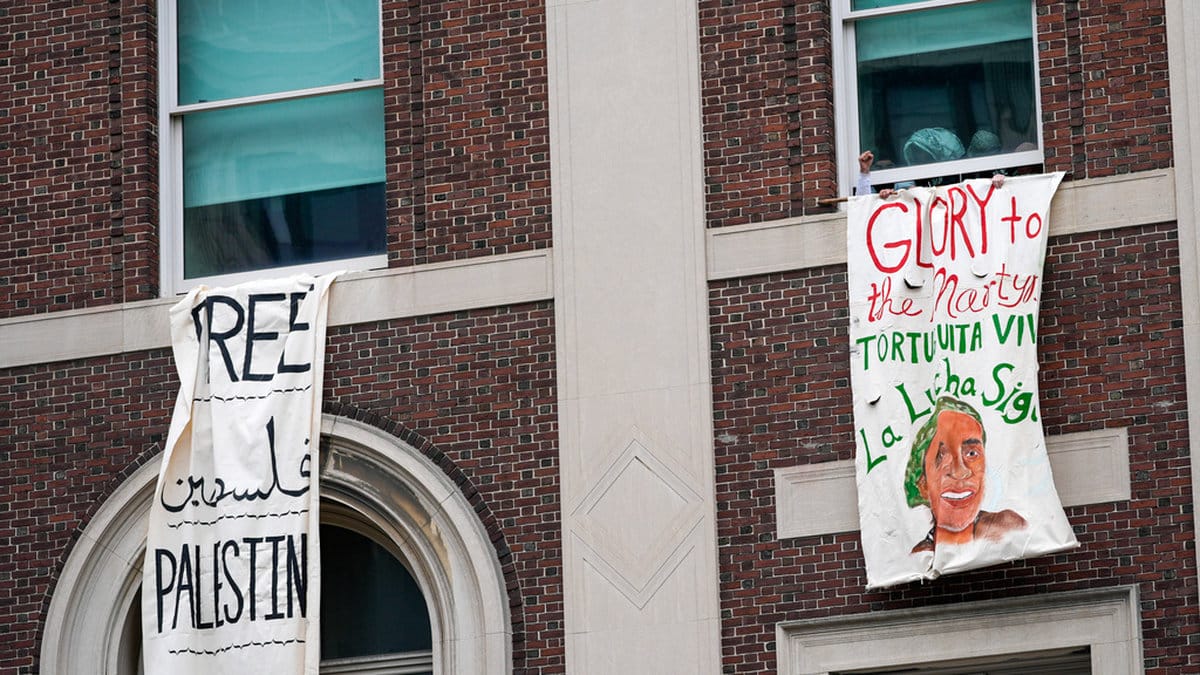 FREE
فلسطين
PALESTIN
GLORY to
the Martyrs
TORTUGUITA VIV
La Lucha Sigu